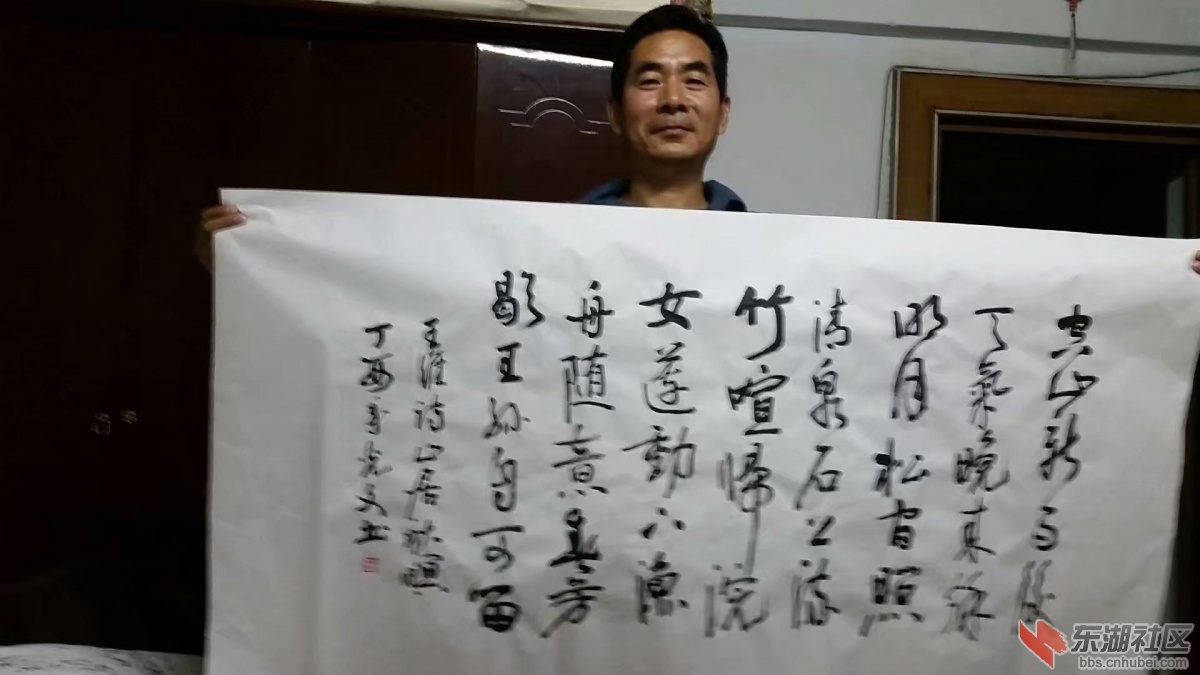 空山新雨後
天氣晚来秋
明月松间照
清泉石上流
竹喧帰浣
女蓮動下漁
舟随意春芳
歇王孙自可留
王维诗山居秋暝
丁酉光文书
东湖社区
bbs.cnhubei.com